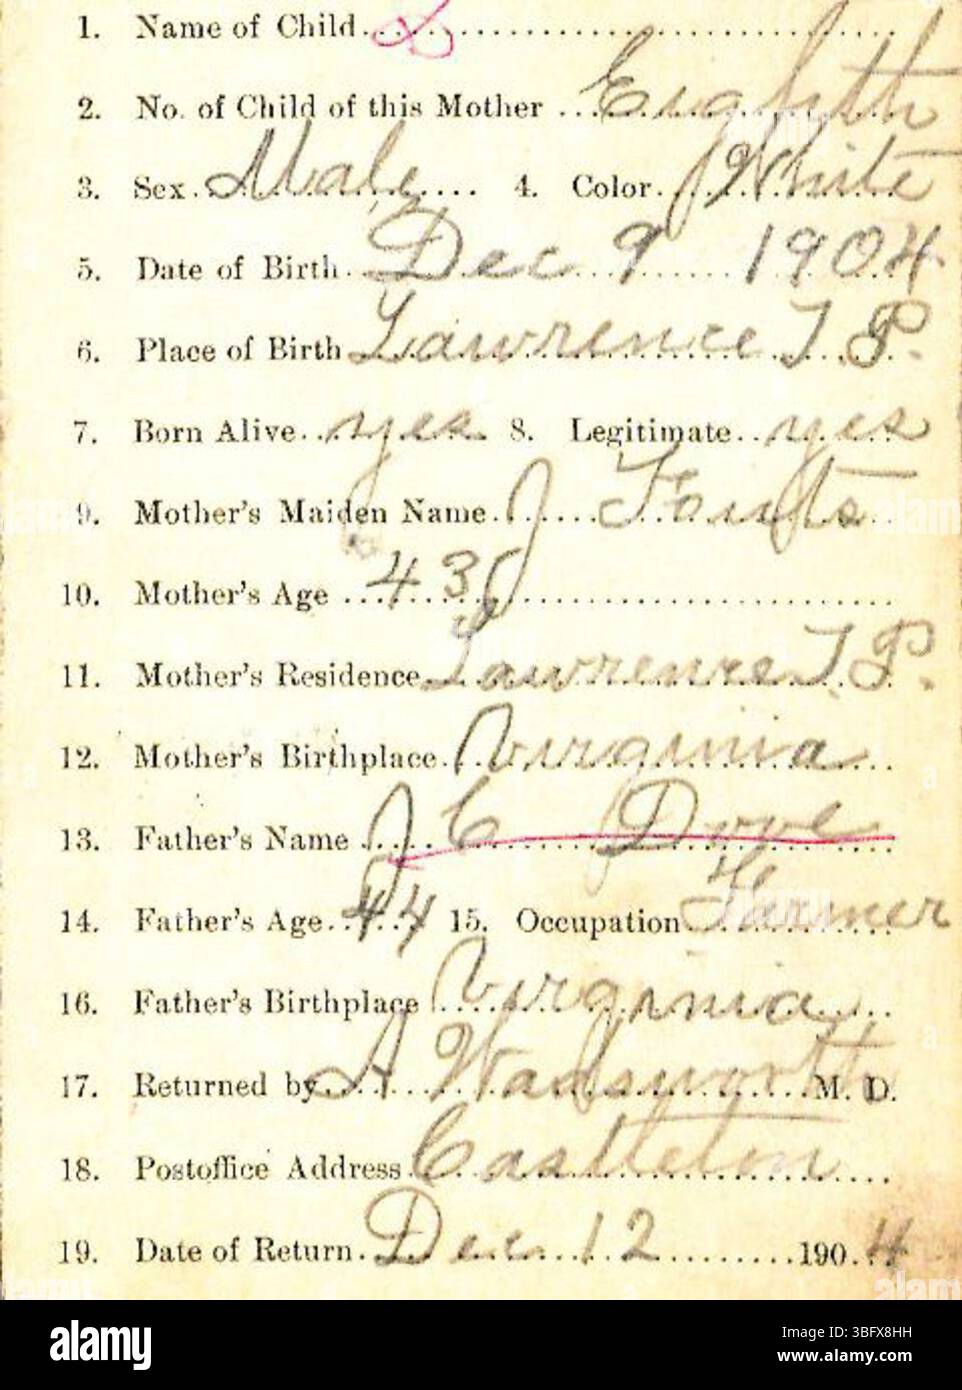 1. Name of Child
2. No. of Child of this Mother Eighth
3. Sex Male 4. Color White
5. Date of Birth Dec 9 1904
6. Place of Birth Lawrence T. P.
7. Born Alive yes 8. Legitimate yes
9. Mother's Maiden Name J Fouts
10. Mother's Age 43
11. Mother's Residence Lawrence T. P.
12. Mother's Birthplace Virginia
13. Father's Name J C Dove
14. Father's Age 44 15. Occupation Farmer
16. Father's Birthplace Virginia
17. Returned by A Wadsworth M. D.
18. Postoffice Address Castleton
19. Date of Return Dec 12 1904
alamy
Image ID: 3BFX8HH
www.alamy.com